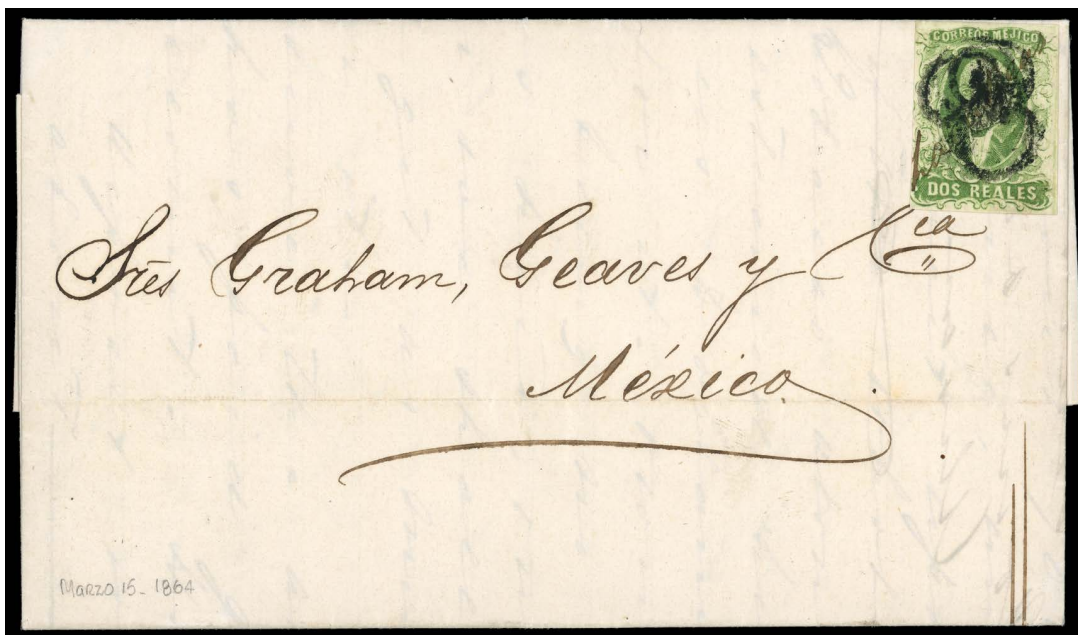 CORREOS MEJICO
DOS REALES
Sres Graham, Geaves y Cia
México.
Marzo 15_ 1864